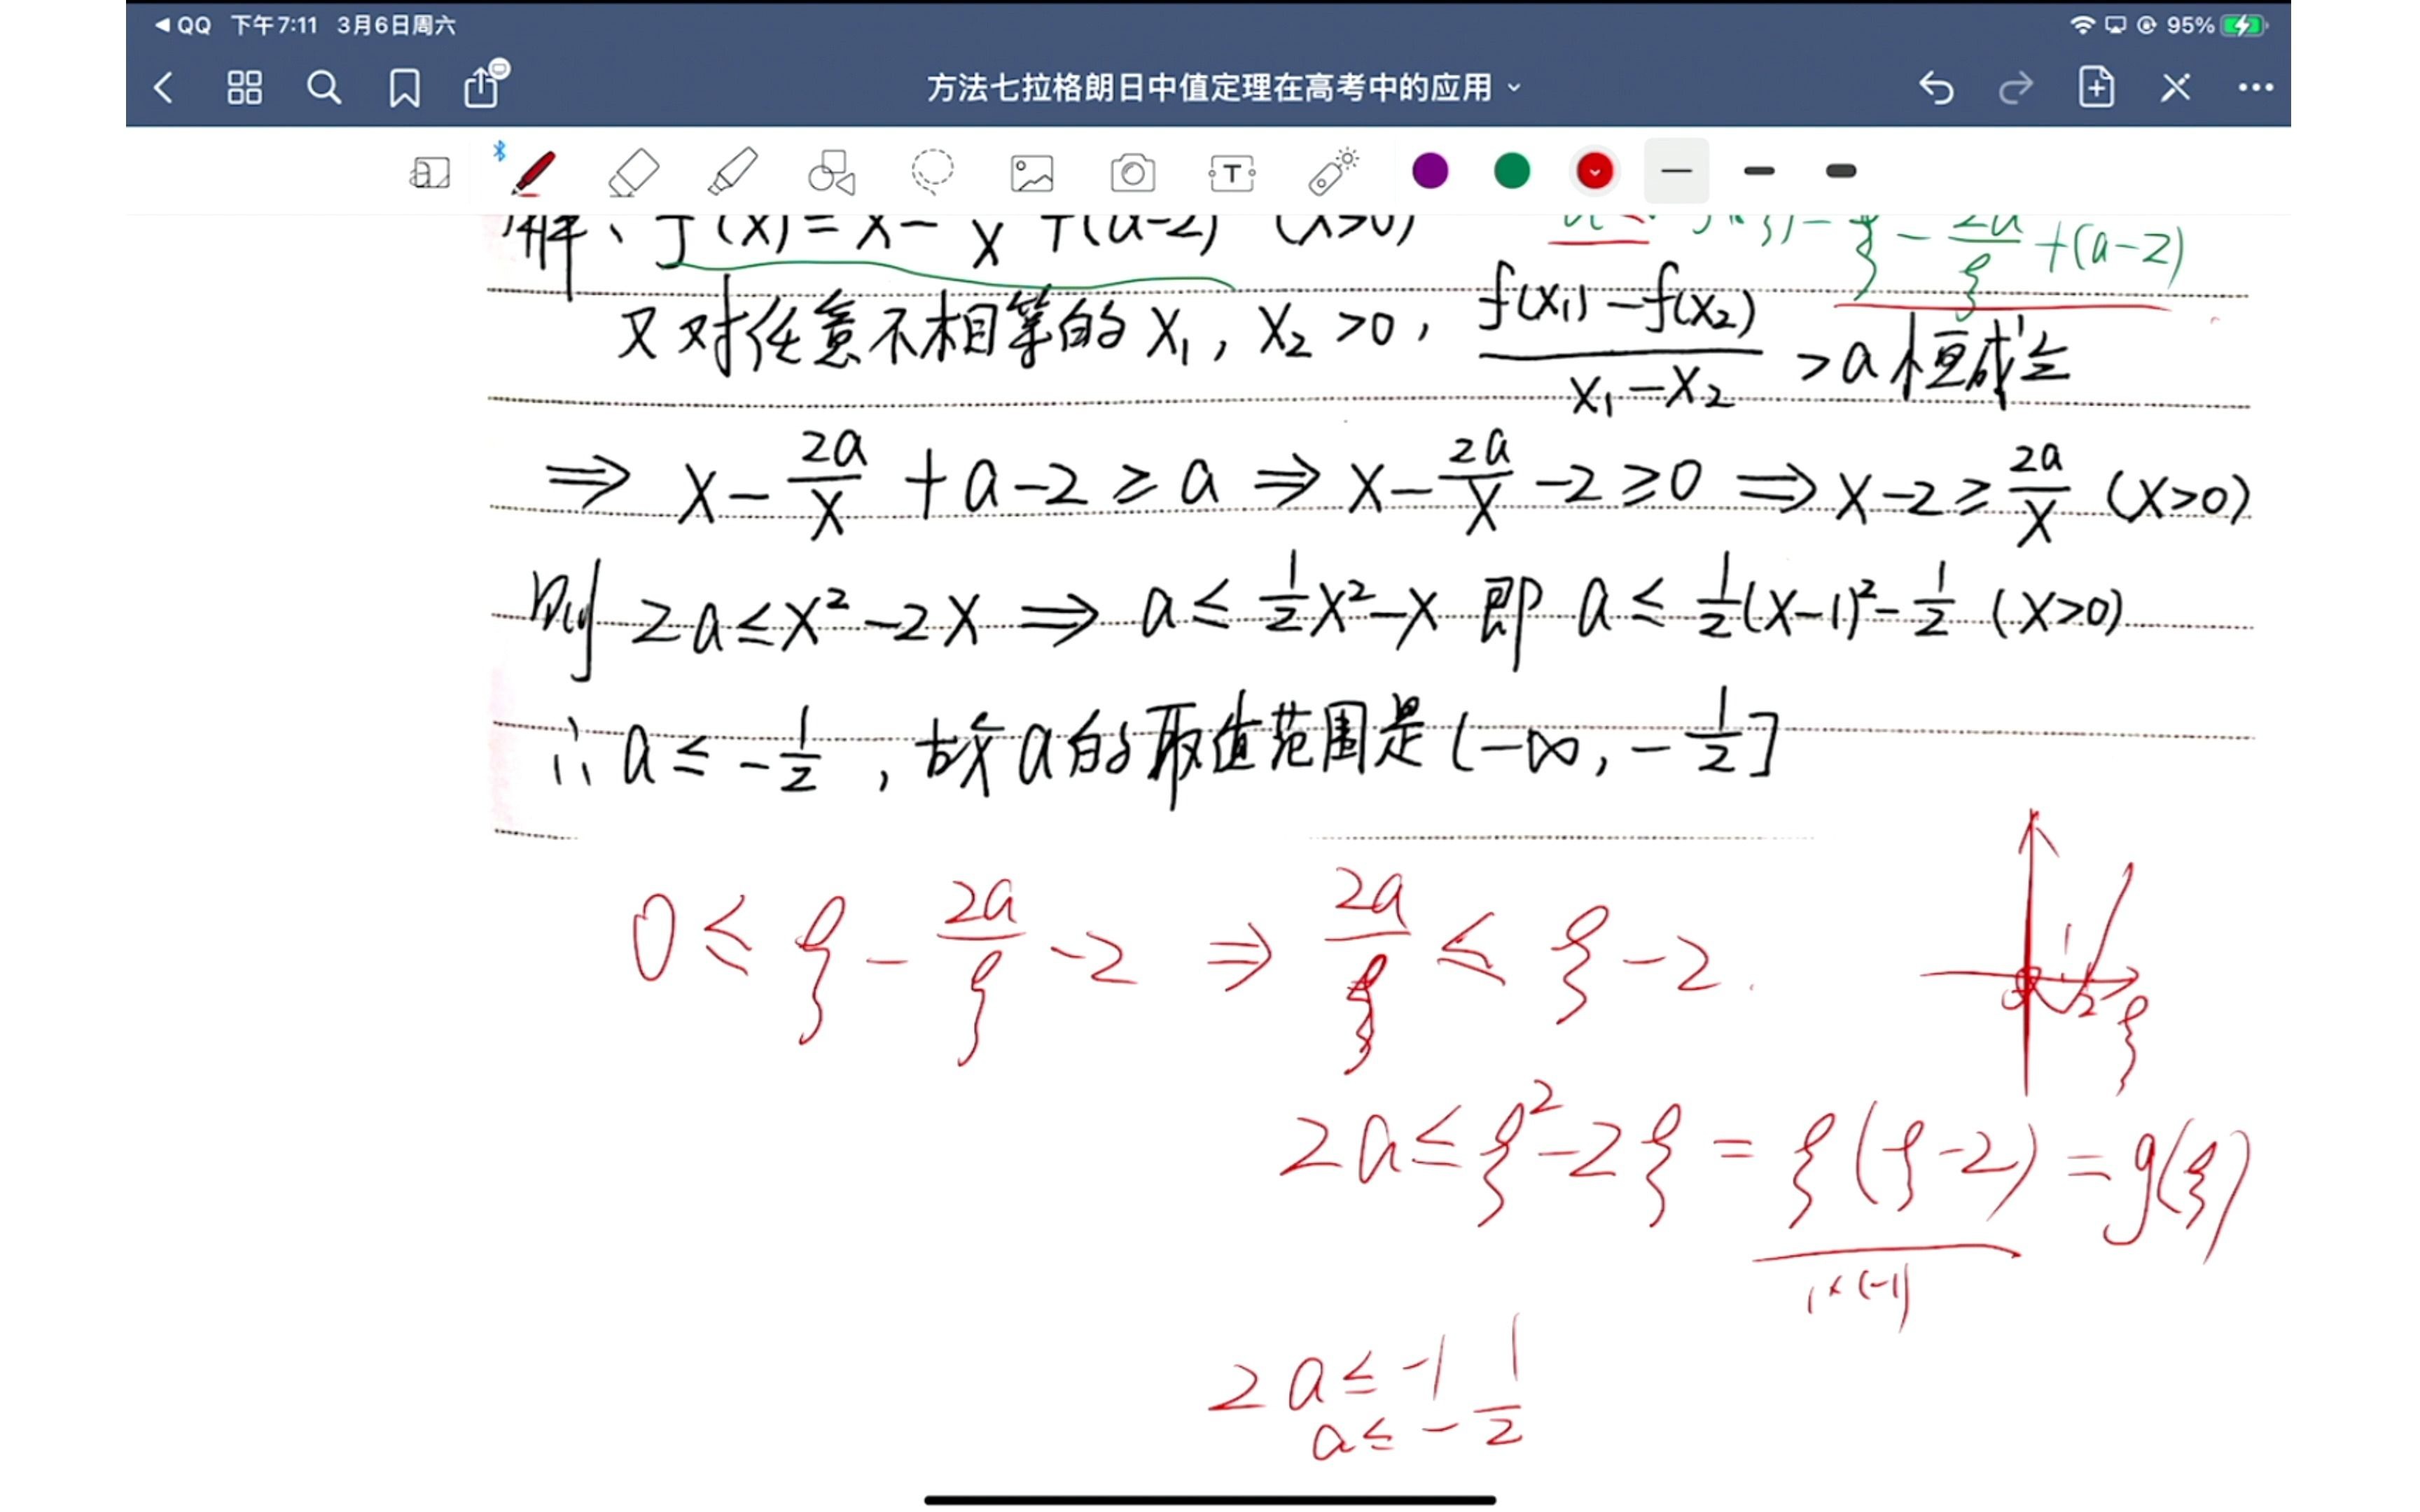 QQ 下午7:11 3月6日周六 95%
方法七拉格朗日中值定理在高考中的应用
解、f'(x)=x- x +(a-2) (x>0)
ξ - 2a/ξ +(a-2)
又对任意不相等的 x₁, x₂ >0, (f(x₁)-f(x₂))/(x₁-x₂) >a 恒成立
⇒ x - 2a/x + a-2 ≥ a ⇒ x - 2a/x -2 ≥0 ⇒ x-2 ≥ 2a/x (x>0)
则 2a ≤ x²-2x ⇒ a ≤ 1/2 x²-x 即 a ≤ 1/2(x-1)²- 1/2 (x>0)
∴ a ≤ - 1/2 , 故 a 的取值范围是 (-∞, - 1/2]
0 ≤ ξ - 2a/ξ -2 ⇒ 2a/ξ ≤ ξ-2.
0 1 2 ξ
2a ≤ ξ²-2ξ = ξ(ξ-2) = g(ξ)
1×(-1)
2a ≤ -1
a ≤ - 1/2